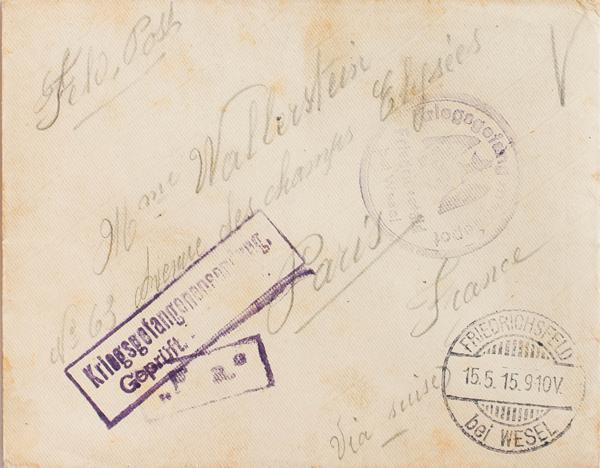 Feld, Post
Mme Wallerstein
No 63 Avenue des champs Elysées
Paris
France
Via suisse
Kriegsgefangenensendung
Geprüft.
Friedrichsfeld
bei Wesel
FRIEDRICHSFELD
15.5.15.910V.
bei WESEL